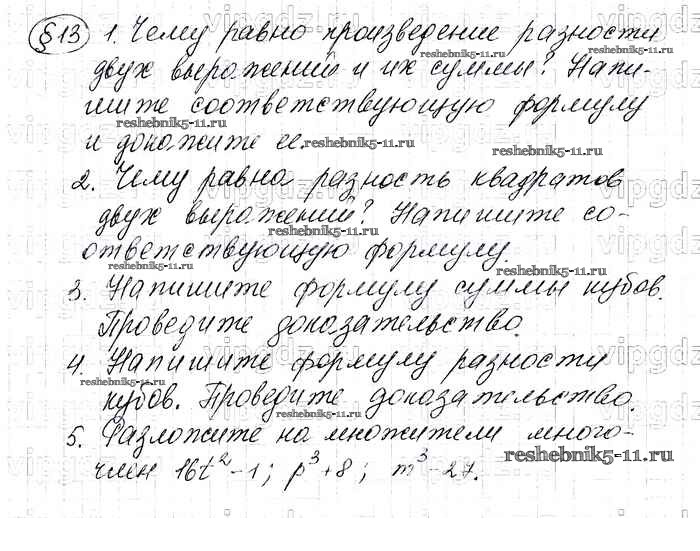 §13 1. Чему равно произведение разности
двух выражений и их суммы? Напи-
шите соответствующую формулу
и докажите ее.
2. Чему равна разность квадратов
двух выражений? Напишите со-
ответствующую формулу.
3. Напишите формулу суммы кубов.
Проведите доказательство.
4. Напишите формулу разности
кубов. Проведите доказательство.
5. Разложите на множители много-
член 16t²-1; p³+8; m³-27.
reshebnik5-11.ru
vipgdz